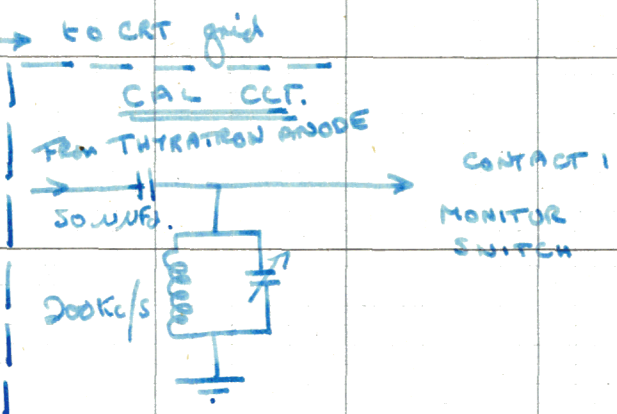 to CRT grid
CAL CCT.
FROM THYRATRON ANODE
CONTACT 1
50 µµFd.
MONITOR
SWITCH
200Kc/s